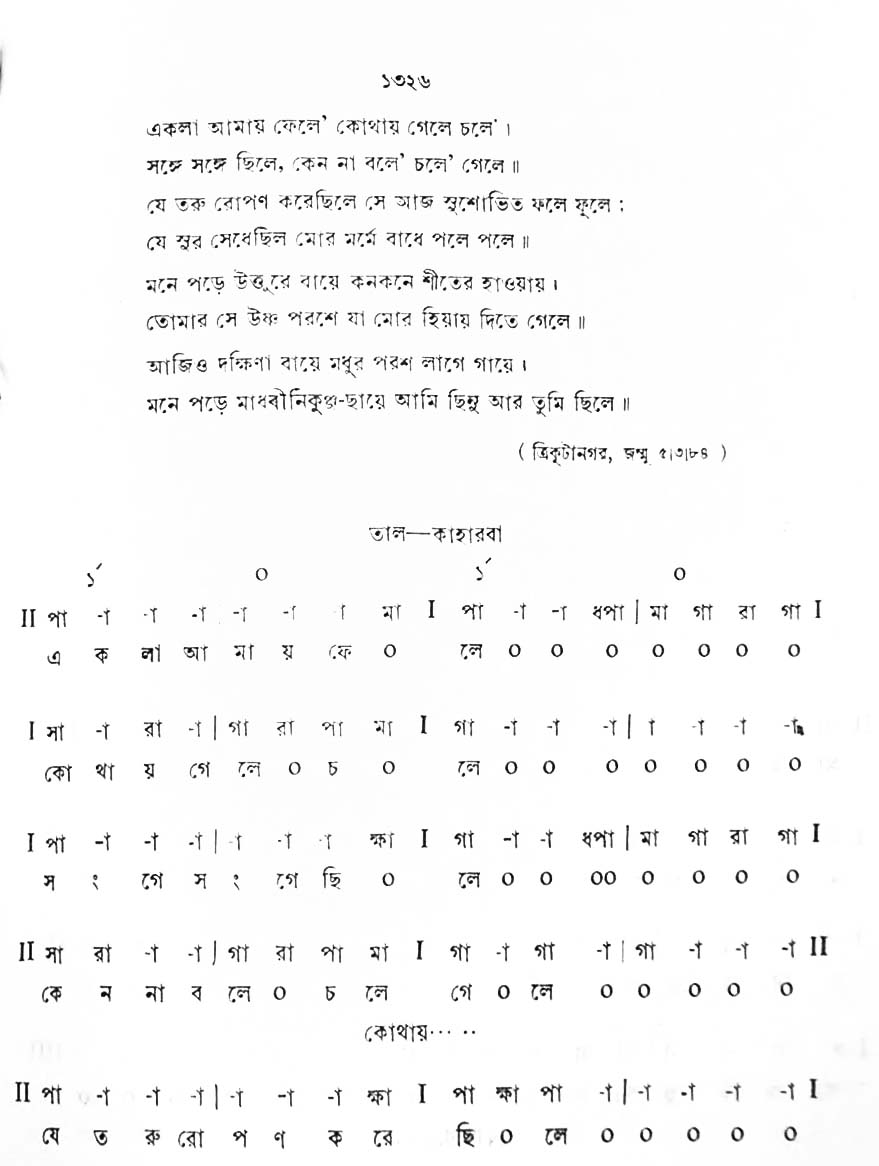 ১৩২৬
একলা আমায় ফেলে' কোথায় গেলে চলে'।
সঙ্গে সঙ্গে ছিলে, কেন না বলে' চলে' গেলে॥
যে তরু রোপণ করেছিলে সে আজ সুশোভিত ফলে ফুলে :
যে সুর সেধেছিল মোর মর্মে বাধে পলে পলে॥
মনে পড়ে উত্তুরে বায়ে কনকনে শীতের হাওয়ায়।
তোমার সে উষ্ণ পরশে যা মোর হিয়ায় দিতে গেলে॥
আজিও দক্ষিণা বায়ে মধুর পরশ লাগে গায়ে।
মনে পড়ে মাধবীনিকুঞ্জ-ছায়ে আমি ছিনু আর তুমি ছিলে॥
( ত্রিকূটানগর, জম্মু ৫।৩।৮৪ )
তাল—কাহারবা
১´ ০ ১´ ০
II পা -া -া -া -া -া া মা I পা -া -া ধপা | মা গা রা গা I
এ ক লা আ মা য় ফে ০ লে ০ ০ ০ ০ ০ ০ ০
I সা -া রা -া | গা রা পা মা I গা -া -া -া | া -া -া -া
কো থা য় গে লে ০ চ ০ লে ০ ০ ০ ০ ০ ০ ০
I পা -া -া -া | -া -া -া ক্ষা I গা -া -া ধপা | মা গা রা গা I
স ং গে স ং গে ছি ০ লে ০ ০ ০০ ০ ০ ০ ০
II সা রা -া -া | গা রা পা মা I গা -া গা -া | গা -া -া -া II
কে ন না ব লে ০ চ লে গে ০ লে ০ ০ ০ ০ ০
কোথায়··· ··
II পা -া -া -া | -া -া -া ক্ষা I পা ক্ষা পা -া | -া -া -া -া I
যে ত রু রো প ণ ক রে ছি ০ লে ০ ০ ০ ০ ০